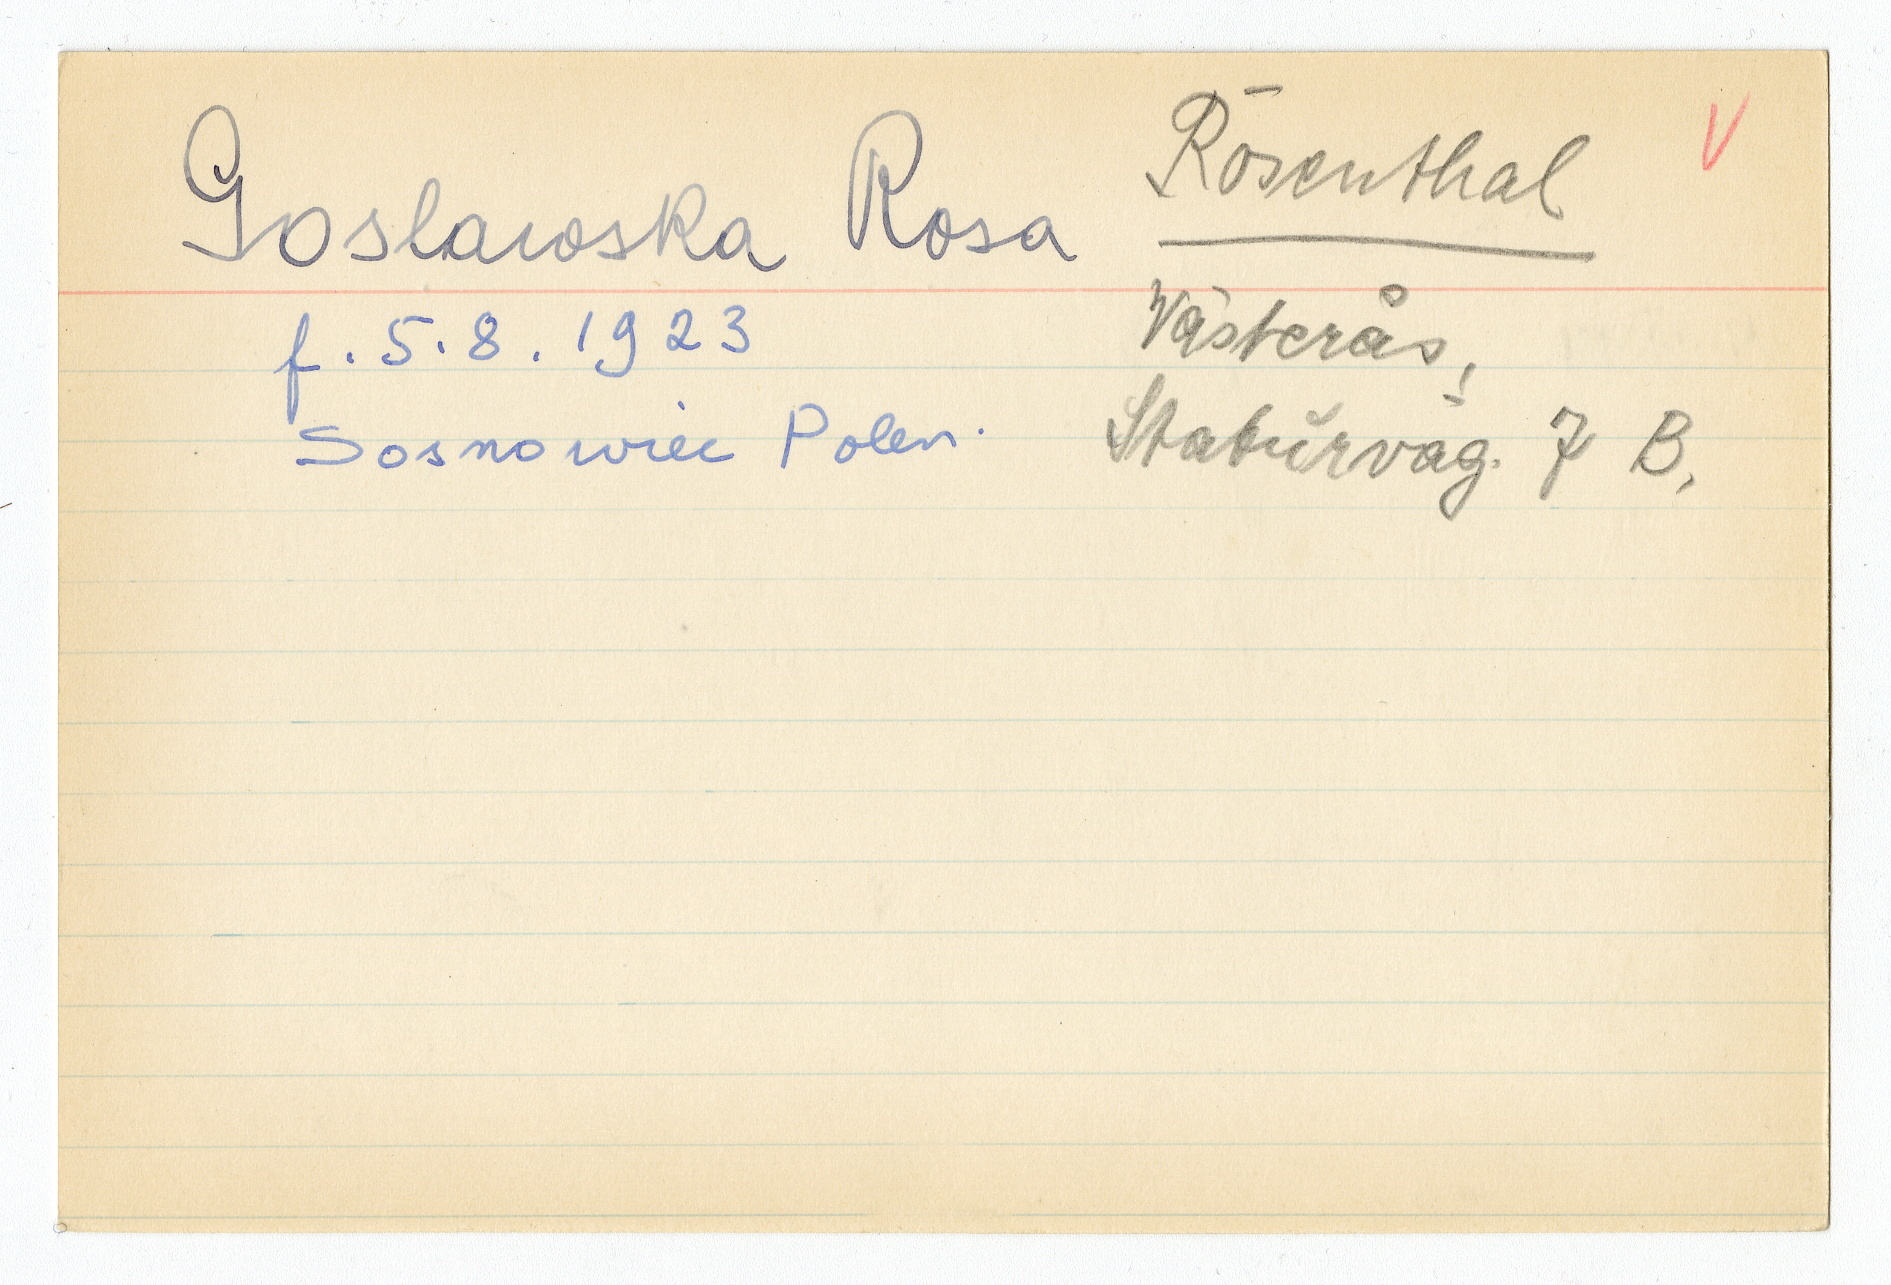 Goslawska Rosa
f. 5.8.1923
Sosnowiec Polen.
Rosenthal
V
Västerås,
7 B.